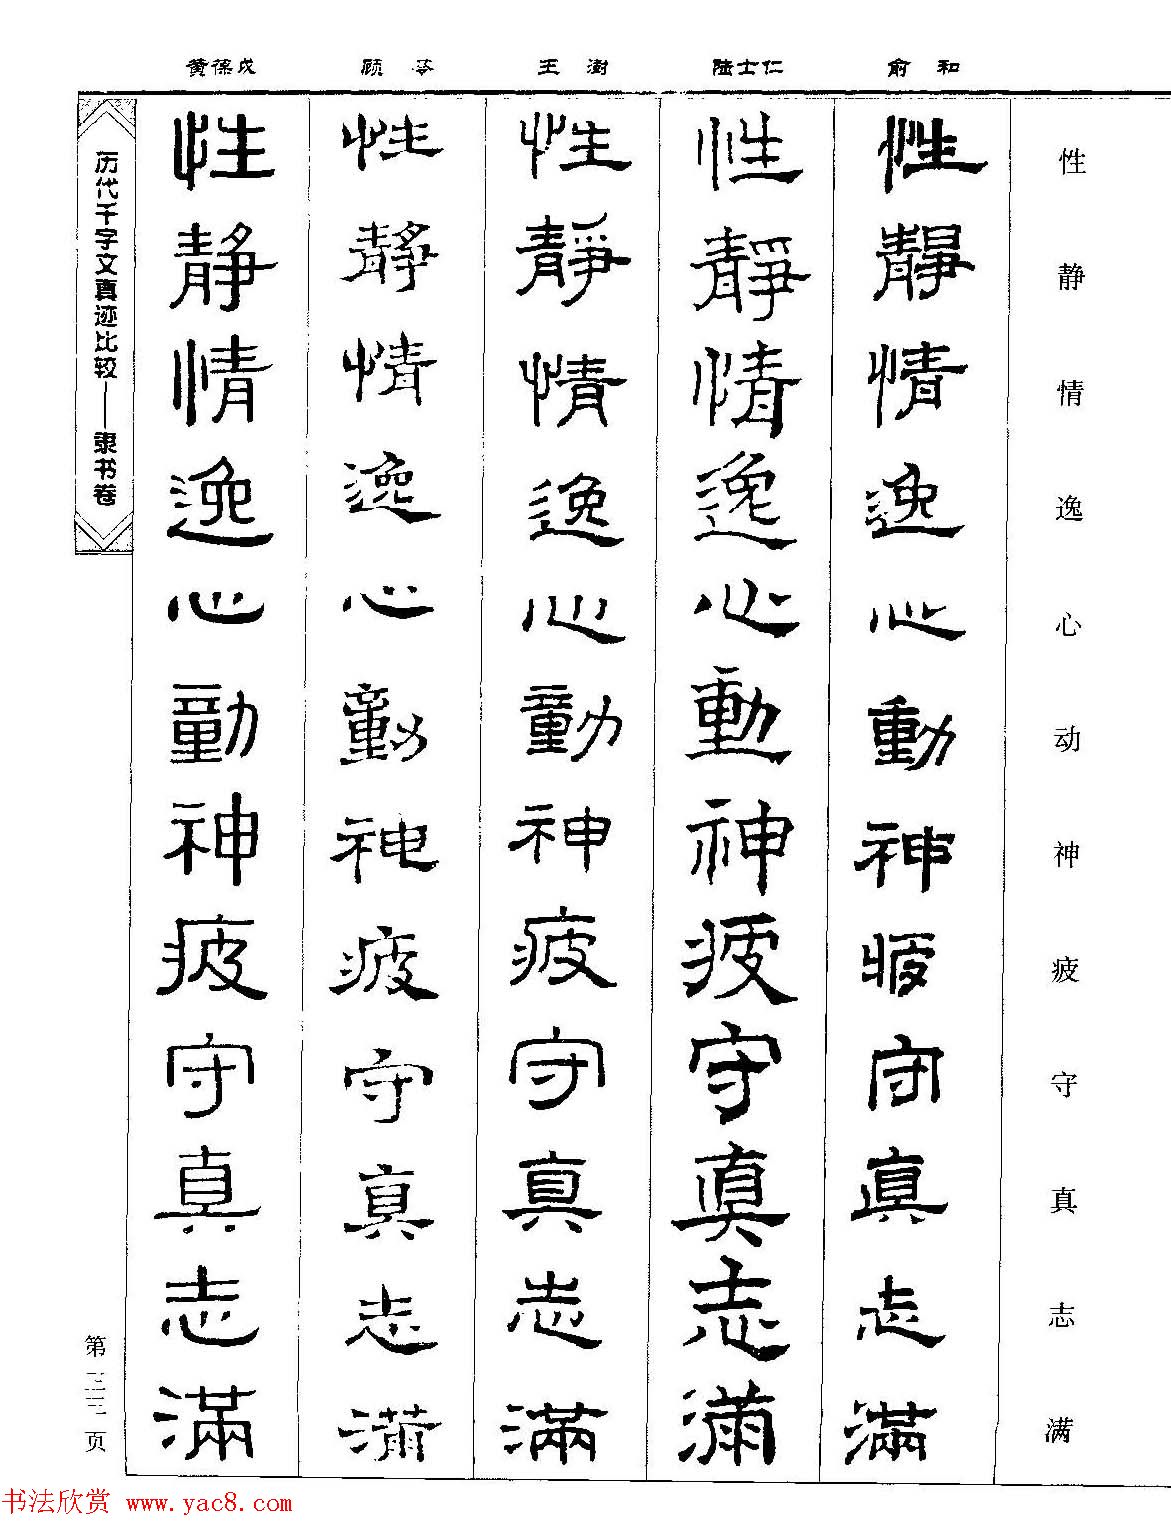 俞和
陆士仁
王澍
顾苓
黄葆戉
性静情逸心动神疲守真志满
性靜情逸心動神疲守真志滿
性靜情逸心動神疲守真志滿
性靜情逸心動神疲守真志滿
性靜情逸心動神疲守真志滿
性靜情逸心動神疲守真志滿
历代千字文真迹比较——隶书卷
第三三页
书法欣赏 www.yac8.com